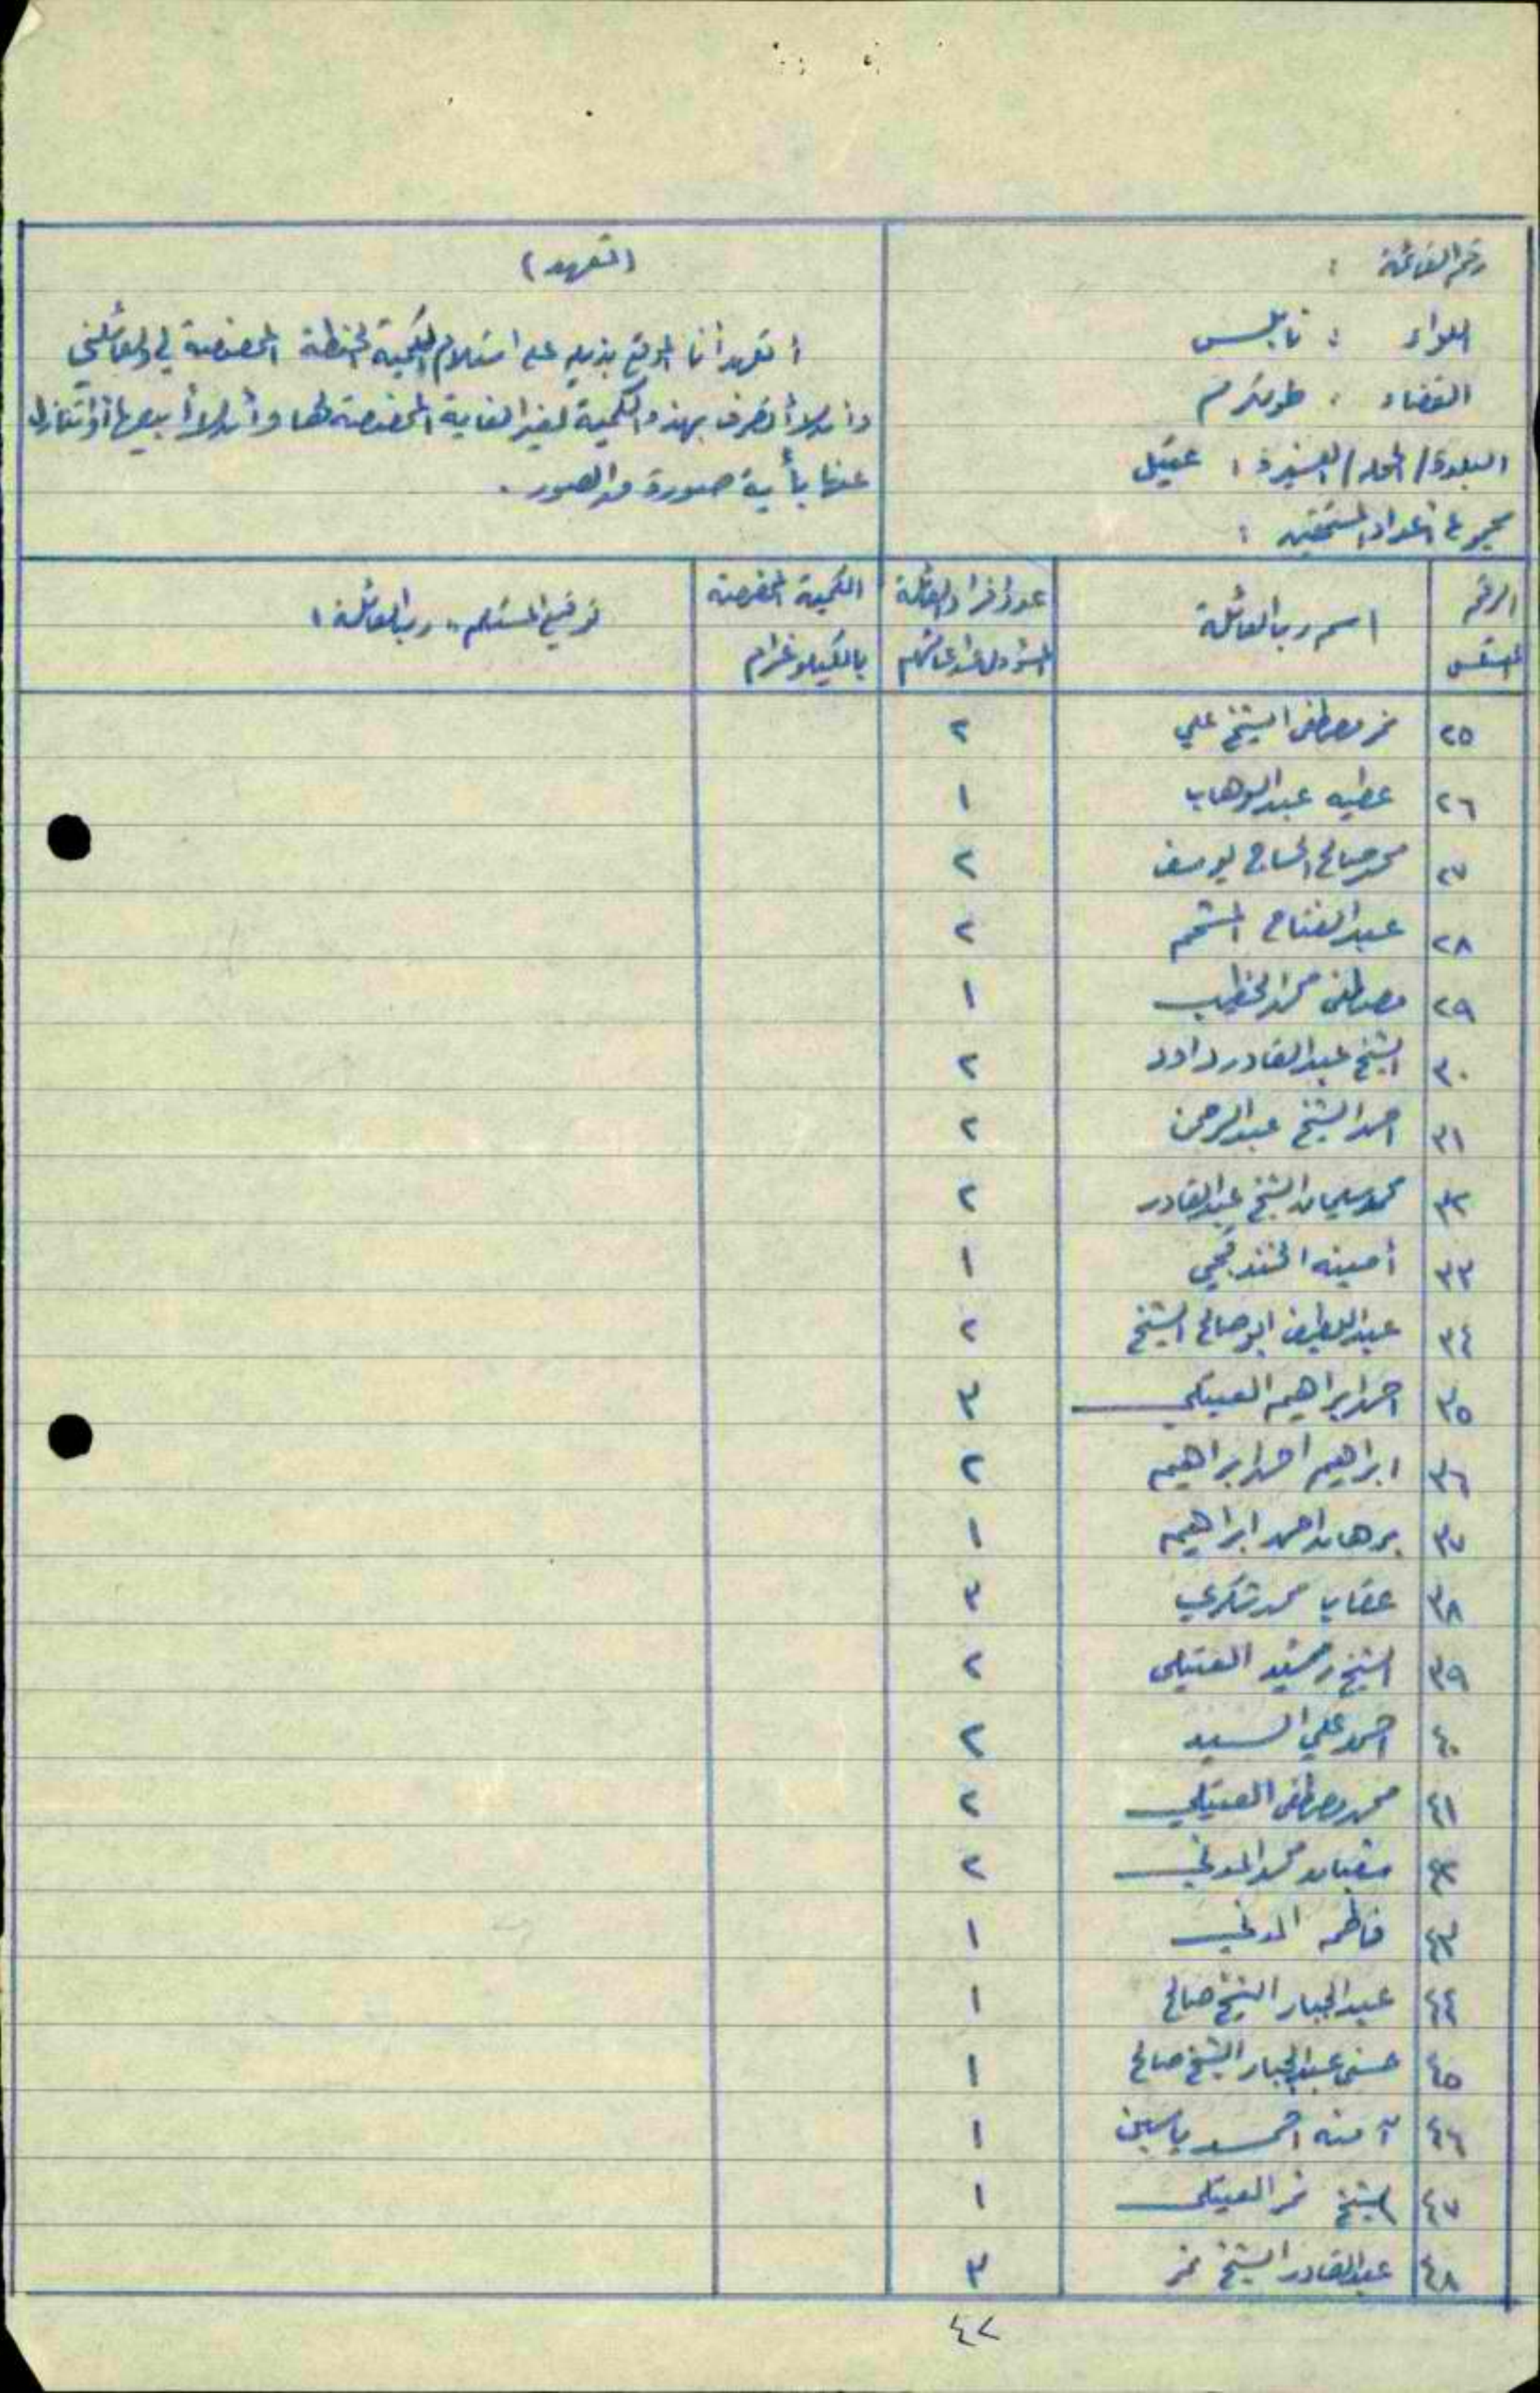 رقم القائمة :
اللواء : نابلس
القضاء : طولكرم
البلدة / المحلة / العشيرة : عتيل
مجموع اعداد المستحقين :
(التعهد)
أتعهد أنا الموقع بذيله على استلام الكمية الحنطة المخصصة لي ولعائلتي
وان لا أتصرف بهذه الكمية لغير الغاية المخصصة لها وأن لا أبيعها أو أتنازل
عنها بأية صورة من الصور .
الرقم المتسلسل | اسم رب العائلة | عدد افراد العائلة المسؤول عن اعالتهم | الكمية المخصصة بالكيلو غرام | توقيع المستلم "رب العائلة"
٢٥ نمر مصطفى الشيخ علي ٢
٢٦ عطيه عبد الوهاب ١
٢٧ محمد صالح الحاج يوسف ٢
٢٨ عبد الفتاح ٢
٢٩ مصطفى محمد الخطيب ١
٣٠ الشيخ عبد القادر داود ٢
٣١ احمد الشيخ عبد الرحمن ٢
٣٢ محمد سليمان الشيخ عبد القادر ٢
٣٣ أمينه الخندقجي ١
٣٤ عبد اللطيف ابو صالح الشيخ ٢
٣٥ احمد ابراهيم العتيلي ٣
٣٦ ابراهيم احمد ابراهيم ٢
٣٧ برهان احمد ابراهيم ١
٣٨ عقاب محمد ٣
٣٩ الشيخ رشيد العتيلي ٢
٤٠ احمد علي السيد ٢
٤١ محمد مصطفى العتيلي ٢
٤٢ محمد المدني ٢
٤٣ فاطمه المدني ١
٤٤ عبد الجبار الشيخ صالح ١
٤٥ حسني عبد الجبار الشيخ صالح ١
٤٦ آمنه احمد ياسين ١
٤٧ الشيخ نمر العتيلي ١
٤٨ عبد القادر الشيخ نمر ٣
٤٢